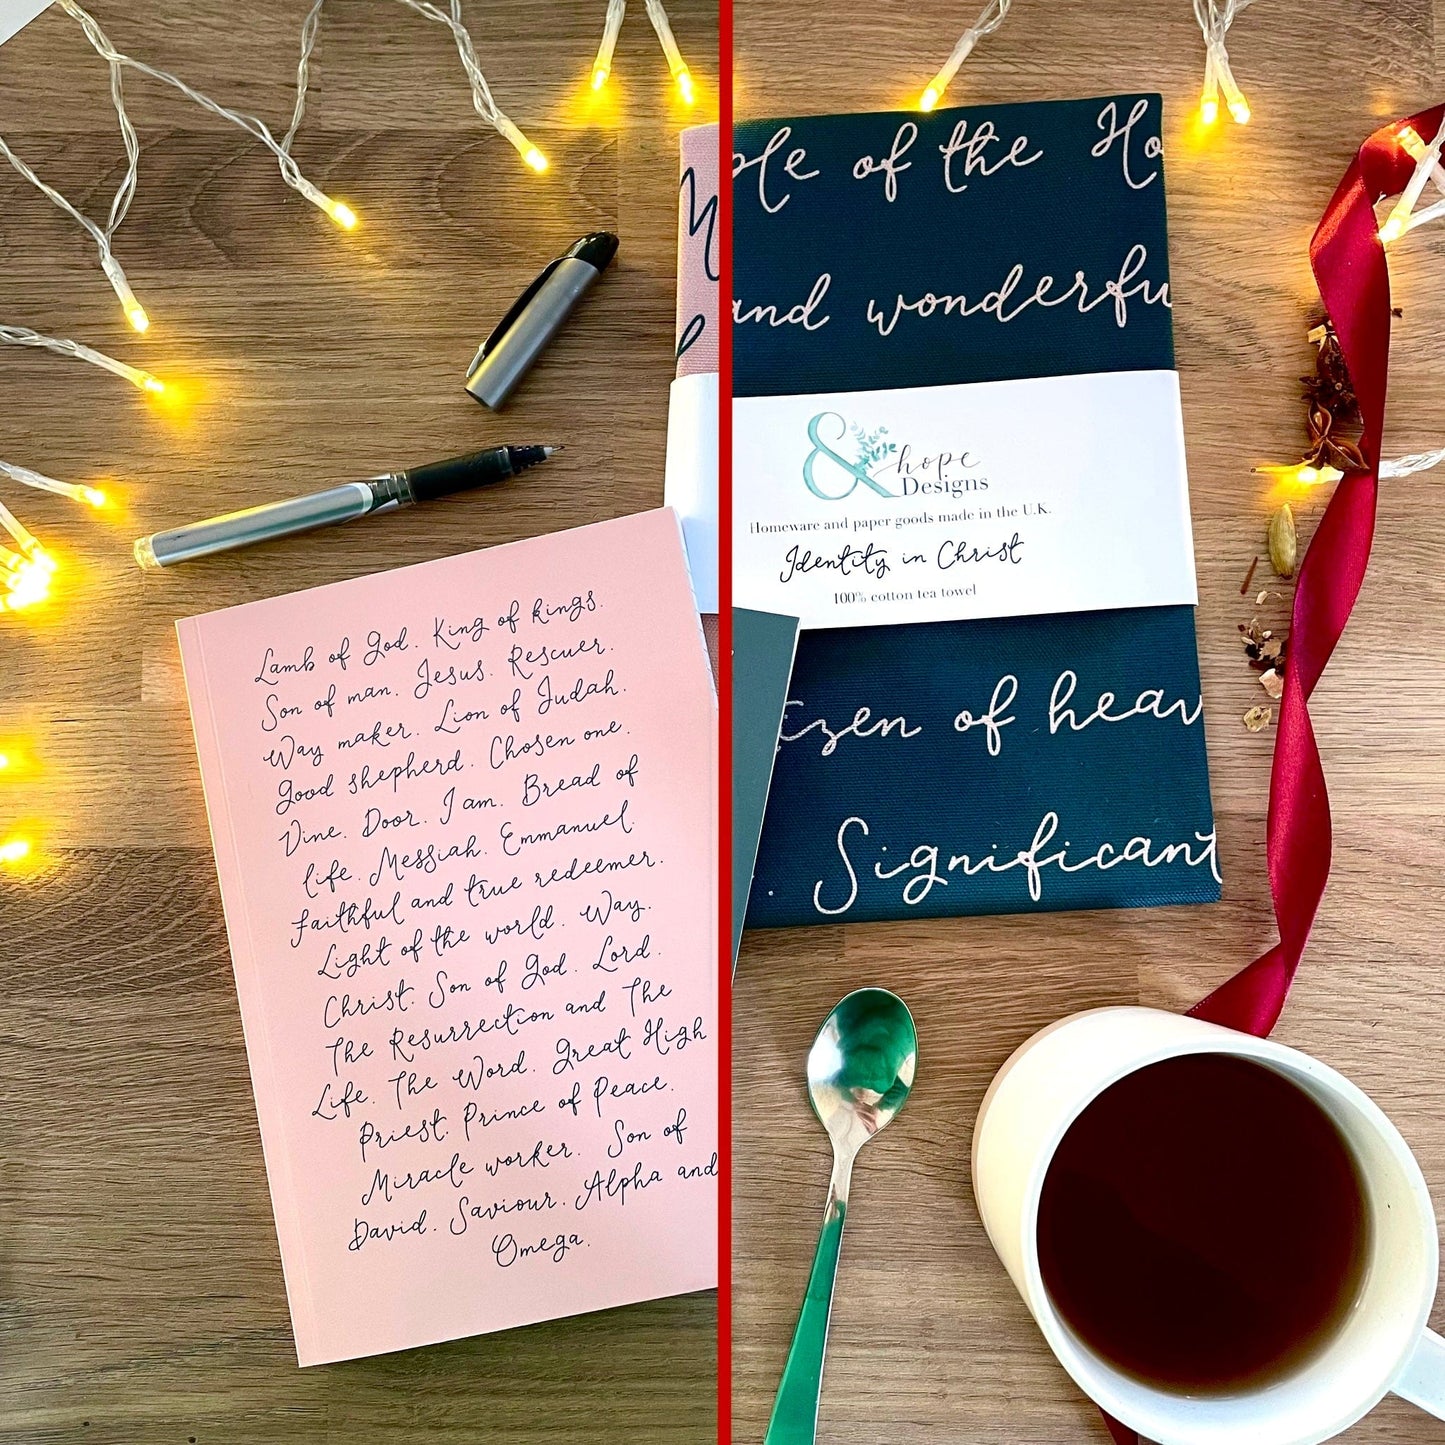 Lamb of God. King of kings.
Son of man. Jesus. Rescuer.
Way maker. Lion of Judah.
Good shepherd. Chosen one.
Vine. Door. I am. Bread of
life. Messiah. Emmanuel.
Faithful and true redeemer.
Light of the world. Way.
Christ. Son of God. Lord.
The Resurrection and The
Life. The Word. Great High
Priest. Prince of Peace.
Miracle worker. Son of
David. Saviour. Alpha and
Omega.
of the
and wonderfu
& hope
Designs
Homeware and paper goods made in the U.K.
Identity in Christ
100% cotton tea towel
of heav
Significant